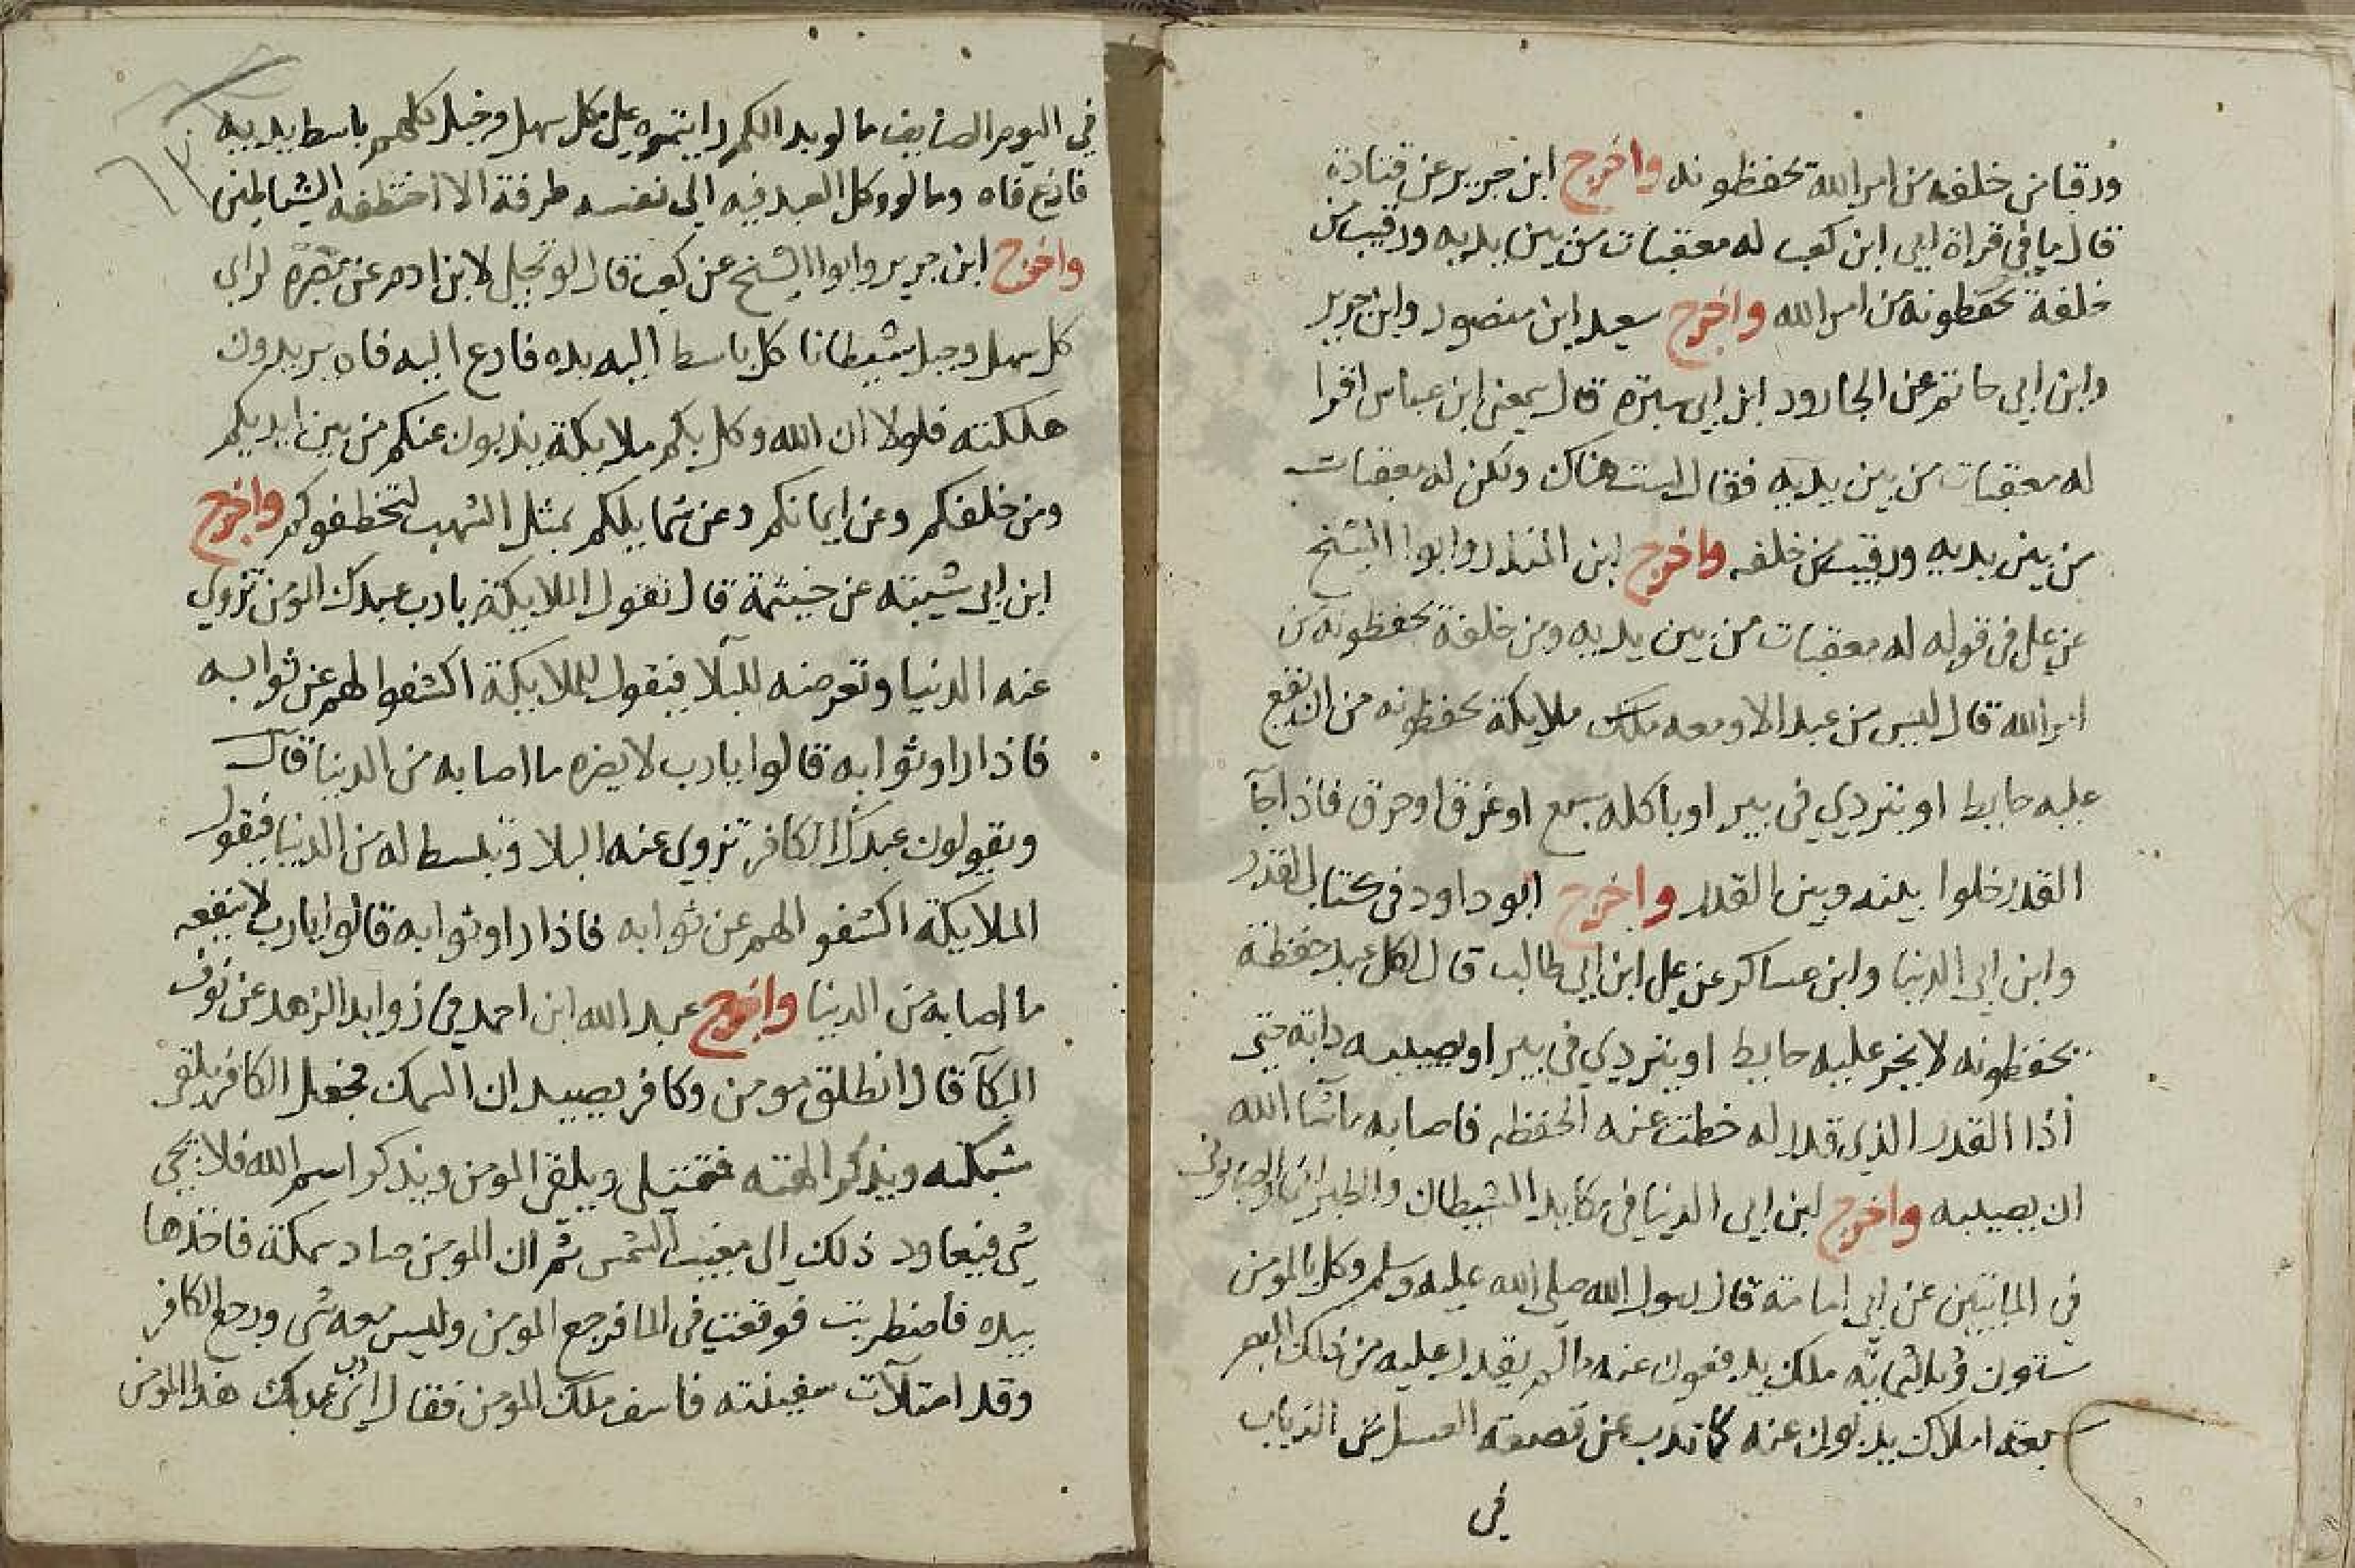 ورقبا من خلفه من امر الله يحفظونه واخرج ابن جرير عن قتادة
قال ما في قراة ابي ابن كعب له معقبات من بين يديه ورقيب من
خلفه يحفظونه من امر الله واخرج سعيد ابن منصور وابن جرير
وابن ابي حاتم عن الجارود ابن ابي سبرة قال سمعني ابن عباس اقرا
له معقبات من بين يديه فقال ليست هناك ولكن له معقبات
من بين يديه ورقيب من خلفه واخرج ابن المنذر وابوا الشيخ
عن علي في قوله له معقبات من بين يديه ومن خلفه يحفظونه من
امر الله قال ليس من عبد الا ومعه ملك ملايكة يحفظونه من ان يقع
عليه حايط او يتردي في بير او ياكله سبع او غرق او حرق فاذا جآ
القدر خلوا بينه وبين القدر واخرج ابو داود في كتاب القدر
وابن ابي الدنيا وابن عساكر عن علي ابن ابي طالب قال لكل عبد حفظة
يحفظونه لا يخر عليه حايط او يتردي في بير او يصيبه دابة حتي
اذا القدر الذي قدر له خلت عنه الحفظه فاصابه ماشا الله
ان يصيبه واخرج ابن ابي الدنيا في مكايد الشيطان والطبراني والصابوني
في الماتين عن ابي امامة قال رسول الله صلي الله عليه وسلم وكل بالمومن
ستون وثلثماية ملك يدفعون عنه مالم يقدر عليه من ذلك البصر
سبعة املاك يذبون عنه كا يذب عن قصعة العسل من الذباب
في
في اليوم الصايف ما لو بدا لكم رايتموه علي كل سهل وجبل كلهم باسط يديه
فاغ فاه وما لو وكل العبد فيه الي نفسه طرفة الا اختطفه الشياطين
واخرج ابن جرير وابوا الشيخ عن كعب قال لو تجلي لابن ادم عن بصره لراي
كل سهل وجبل شيطانا كل باسط اليه يده فادع اليه فاه يريدون
هلكته فلولا ان الله وكل بكم ملايكة يذبون عنكم من بين ايديكم
ومن خلفكم وعن ايمانكم وعن شمايلكم بمثل الشهب لتخطفوكم واخرج
ابن ابي شيبته عن خيثمة قال تقول الملايكة يارب عبدك المومن تزوي
عنه الدنيا وتعرضه للبلآ فيقول للملايكة اكشفوا لهم عن ثوابه
فاذا راو ثوابه قالوا يارب لا يضره ما اصابه من الدنيا قال
ويقولون عبدك الكافر تزوي عنه البلا وتبسط له من الدنيا فيقول
الملايكة اكشفوا لهم عن ثوابه فاذا راو ثوابه قالوا يارب لا ينفعه
ما اصابه من الدنيا واخرج عبد الله ابن احمد في زوايد الزهد عن نوف
البكآ قال انطلق مومن وكافر يصيدان السمك فجعل الكافر يلقي
شبكته ويذكر الهته فتمتلي ويلقي المومن ويذكر اسم الله فلا يجي
شي فيعاود ذلك الي مغيب الشمس ثم ان المومن صاد سمكة فاخذها
بيده فاضطربت فوقعت في الما فرجع المومن وليس معه شي ورجع الكافر
وقد امتلآت سفينته فاسف ملك المومن فقال اي رب عبدك هذا المومن